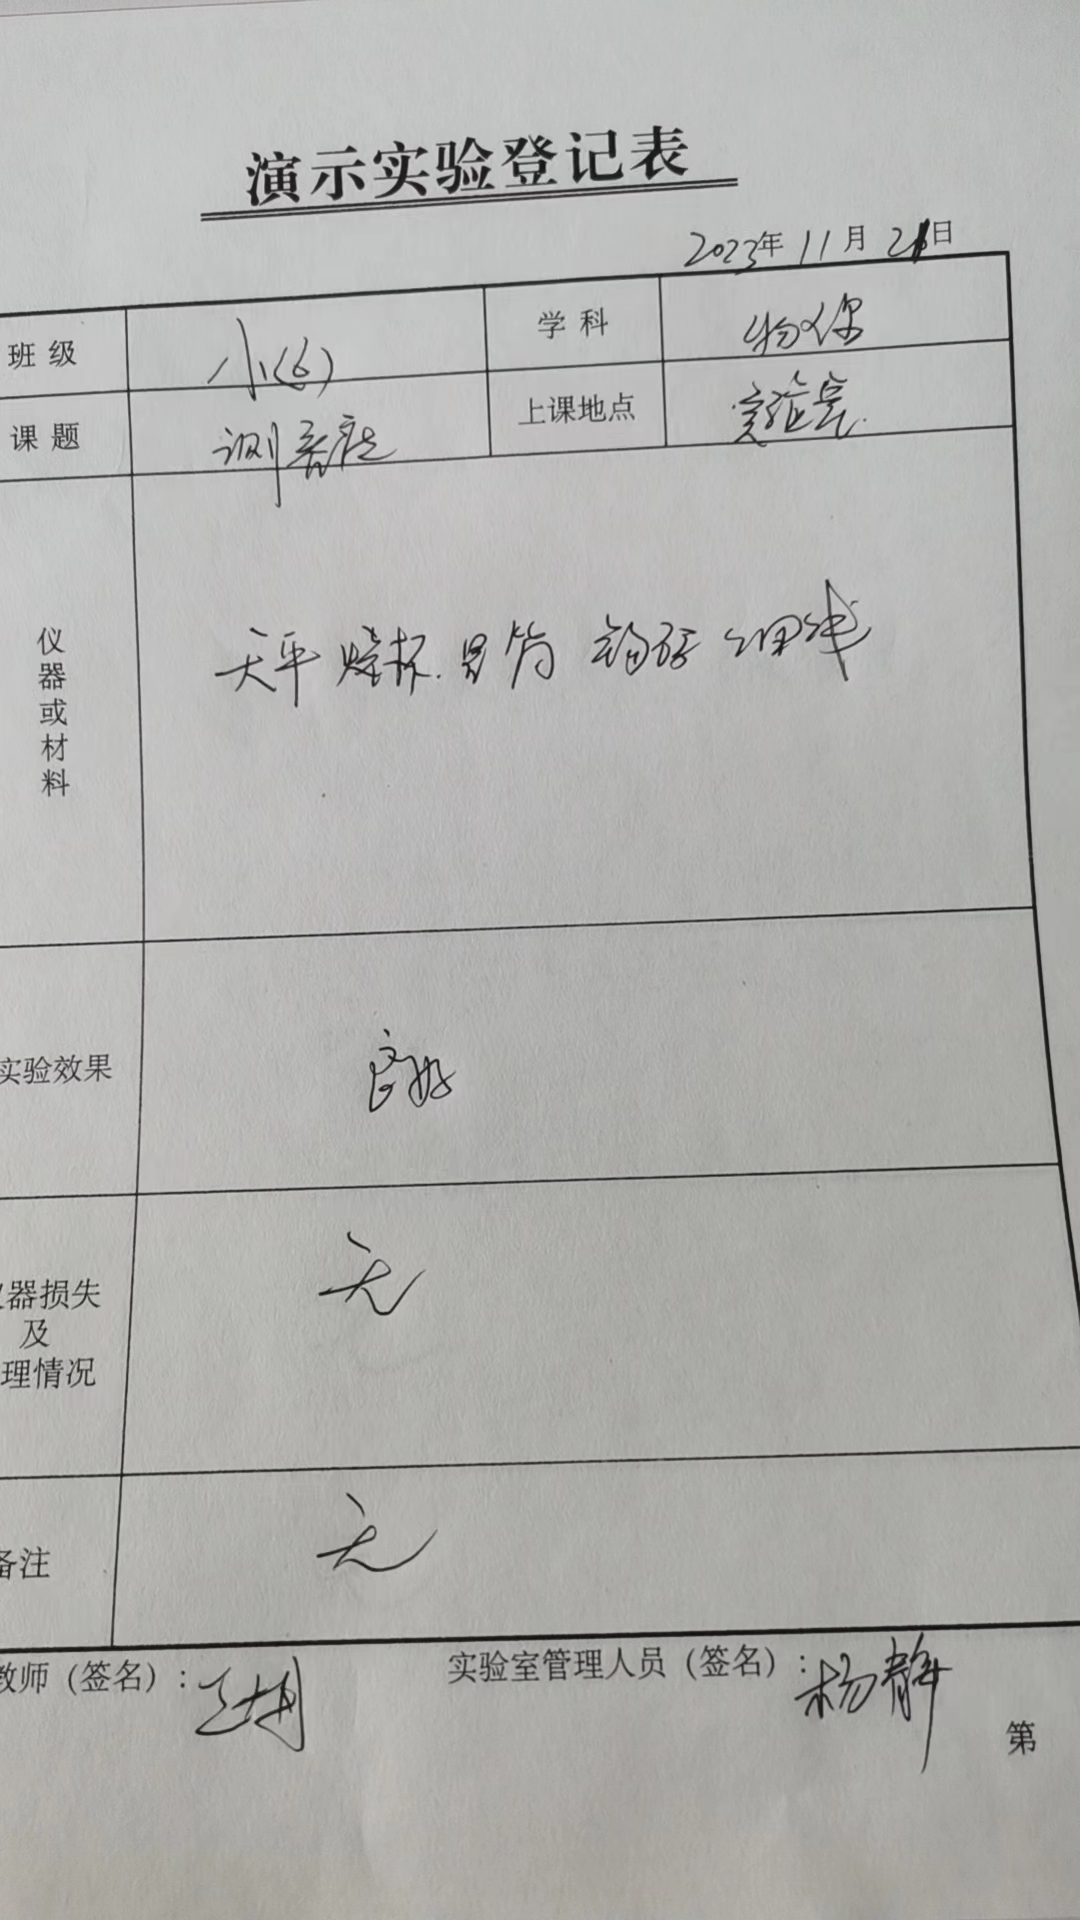 演示实验登记表
2023年 11月 21日
班级 八(6) 学科 物理
课题 测密度 上课地点 实验室.
仪器或材料 天平 烧杯. 量筒 细线
实验效果 良好
器损失
及
理情况
无
备注 无
教师（签名）： 实验室管理人员（签名）：杨静
第